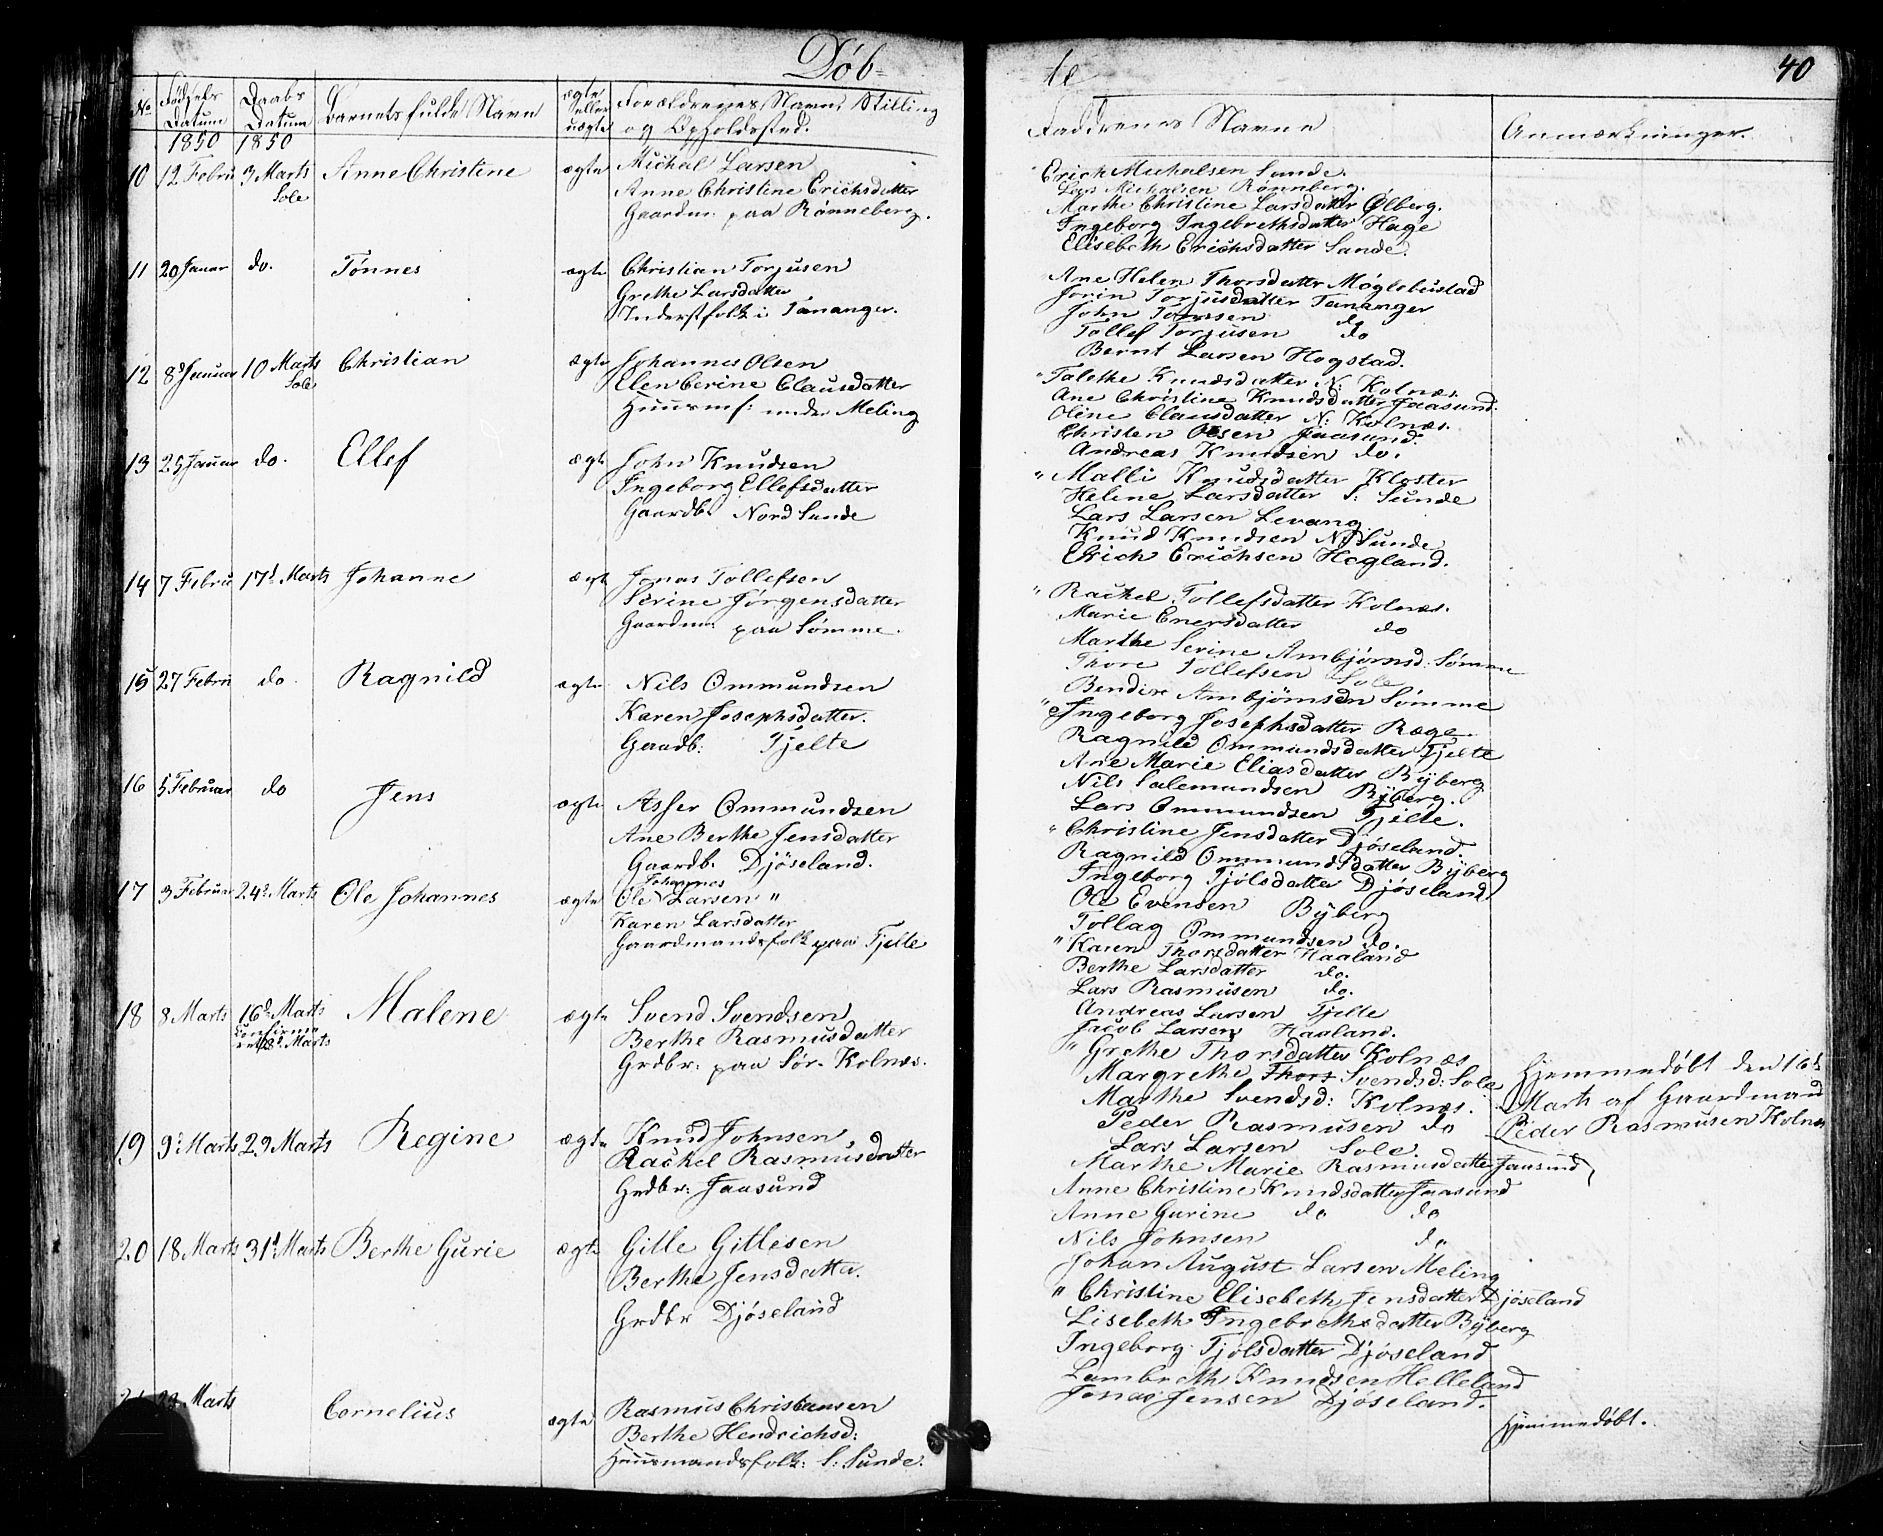 Døb-
te
40
No
Fødsels Datum
Daabs Datum
Barnets fulde Navn
ægte eller uægte
Forældrenes Navn, Stilling og Opholdssted.
Faddrenes Navne
Anmærkninger.
1850 1850
10 12 Febru 3 Marts Sole Anne Christine ægte Michal Larsen
Anne Christine Erichsdatter
Gaardm: paa Rønneberg.
Erich Michalsen Sunde.
Lars Michalsen Rønnberg.
Marthe Christine Larsdatter Ølberg.
Ingeborg Ingebrethsdatter Hage
Elisebeth Erichsdatter Sande.
11 20 Januar do. Tønnes ægte Christian Torjusen
Grethe Larsdatter
Inderstfolk i Tananger.
Ane Helen Thorsdatter Møglebustad
Jorin Torjusdatter Tananger
John Tønnesen do
Tollef Torjusen do
Bernt Larsen Hogstad.
12 8d Januar 10 Marts Sole Christian ægte Johannes Olsen
Elen Cerine Clausdatter
Huusmf: under Meling
" Talethe Knudsdatter N: Kolnæs.
Ane Christine Knudsdatter Jaasund.
Oline Clausdatter N: Kolnæs.
Christen Olsen Jaasund.
Andreas Knudsen do.
13 25 Januar do. Ellef ægte John Knudsen
Ingeborg Ellefsdatter
Gaardb. Nord Sunde
" Malli Knudsdatter Kloster
Helene Larsdatter S: Sunde
Lars Larsen Levang
Knud Knudsen N. Sunde
Erich Erichsen Hogland.
14 7 Febru 17d Marts Johanne ægte Jonas Tollefsen
Serine Jørgensdatter
Gaardm: paa Sømme.
" Rachel Tollefsdatter Kolnæs.
Marie Enersdatter do
Marthe Serine Ambjørnsd: Sømme
Thore Tollefsen Sole
Bendix Ambjørnsen Sømme
15 27 Febru do. Ragnild ægte Nils Ommundsen
Karen Josephsdatter.
Gaardb: Tjelte
" Ingeborg Josephsdatter Ræge.
Ragnild Ommundsdatter Tjelte
Ane Marie Eliasdatter Byberg
Nils Salemundsen Byberg.
Lars Ommundsen Tjelte.
16 5 Februar do Jens ægte Asser Ommundsen
Ane Berthe Jensdatter
Gaardb. Djøseland.
" Christine Jensdatter Djøseland
Ragnild Ommundsdatter Byberg
Ingeborg Tjølsdatter Djøseland
Ole Evensen Byberg
Tollag Ommundsen do.
17 3 Februar 24d Marts Ole Johannes ægte Ole Johannes Larsen "
Karen Larsdatter
Gaardmandsfolk paa Tjelte
" Karen Thorsdatter Haaland
Berthe Larsdatter do.
Lars Rasmusen do.
Andreas Larsen Tjelte
Jacob Larsen Haaland.
18 8 Marts 16d Marts
28d Marts Malene ægte Svend Svendsen
Berthe Rasmusdatter
Grdbr: paa Sør-Kolnæs.
" Grethe Thorsdatter Kolnæs
Margrethe Thors Svendsd: Sole
Marthe Svendsd: Kolnæs.
Peder Rasmusen do
Lars Larsen Sole.
Hjemmedøbt den 16d
Marts af Gaardmand
Peder Rasmusen Kolnæs
19 9d Marts 29 Marts Regine ægte Knud Johnsen
Rachel Rasmusdatter
Grdbr: Jaasund
Marthe Marie Rasmusdatter Jaasund
Anne Christine Knudsdatter Jaasund
Anne Gurine do do
Nils Johnsen do
Johan August Larsen Meling
20 18 Marts 31d Marts Berthe Gurie ægte Gitle Gitlesen
Berthe Jensdatter.
Grdbr Djøseland
" Christine Elisebeth Jensdatter Djøseland
Lisebeth Ingebrethsdatter Byberg
Ingeborg Tjølsdatter Djøseland
Lambreth Knudsen Helleland
Jonas Jensen Djøseland.
Marts Cornelius ægte Rasmus Christiansen
Berthe Hendrichsd:
Huusmandsfolk: S: Sunde.
Hjemmedøbt.